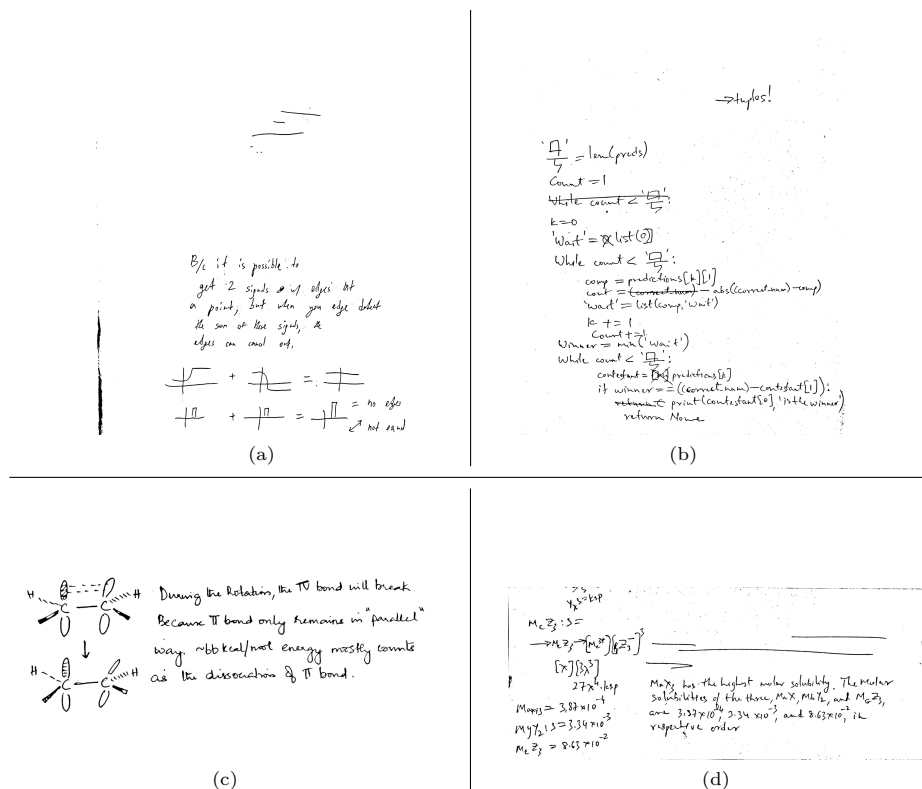 B/c it is possible to
get 2 signals w/ edges at
a point, but when you edge detect
the sum of these signals, the
edges can cancel out.
+ =
+ = = no edges
not equal
(a)
→tuples!
= len(preds)
Count = 1
While count < :
k=0
'Wait' = list(0)
While count < :
comp = predictions[k][1]
cout = (correctnum) - abs((correctnum)-comp)
'wait' = list(comp, 'wait')
k += 1
Count += 1
Winner = min('Wait')
While count < :
contestant = predictions[k]
if winner == ((correctnum)-contestant[1]):
print(contestant[0], 'is the winner')
return None
(b)
H H
C C
C C
During the Rotation, the π bond will break.
Because π bond only remains in "parallel"
way. ~66 kcal/mol energy mostly counts
as the dissociation of π bond.
(c)
=ksp
[x][3x³]
27x⁴=ksp
= 3.87x10⁻⁴
= 3.34x10⁻³
= 8.63x10⁻²
has the highest molar solubility. The Molar
solubilities of the three, MaX, MbY₂, and McZ₃,
are 3.87x10⁻⁴, 3.34x10⁻³, and 8.63x10⁻², in
respective order
(d)